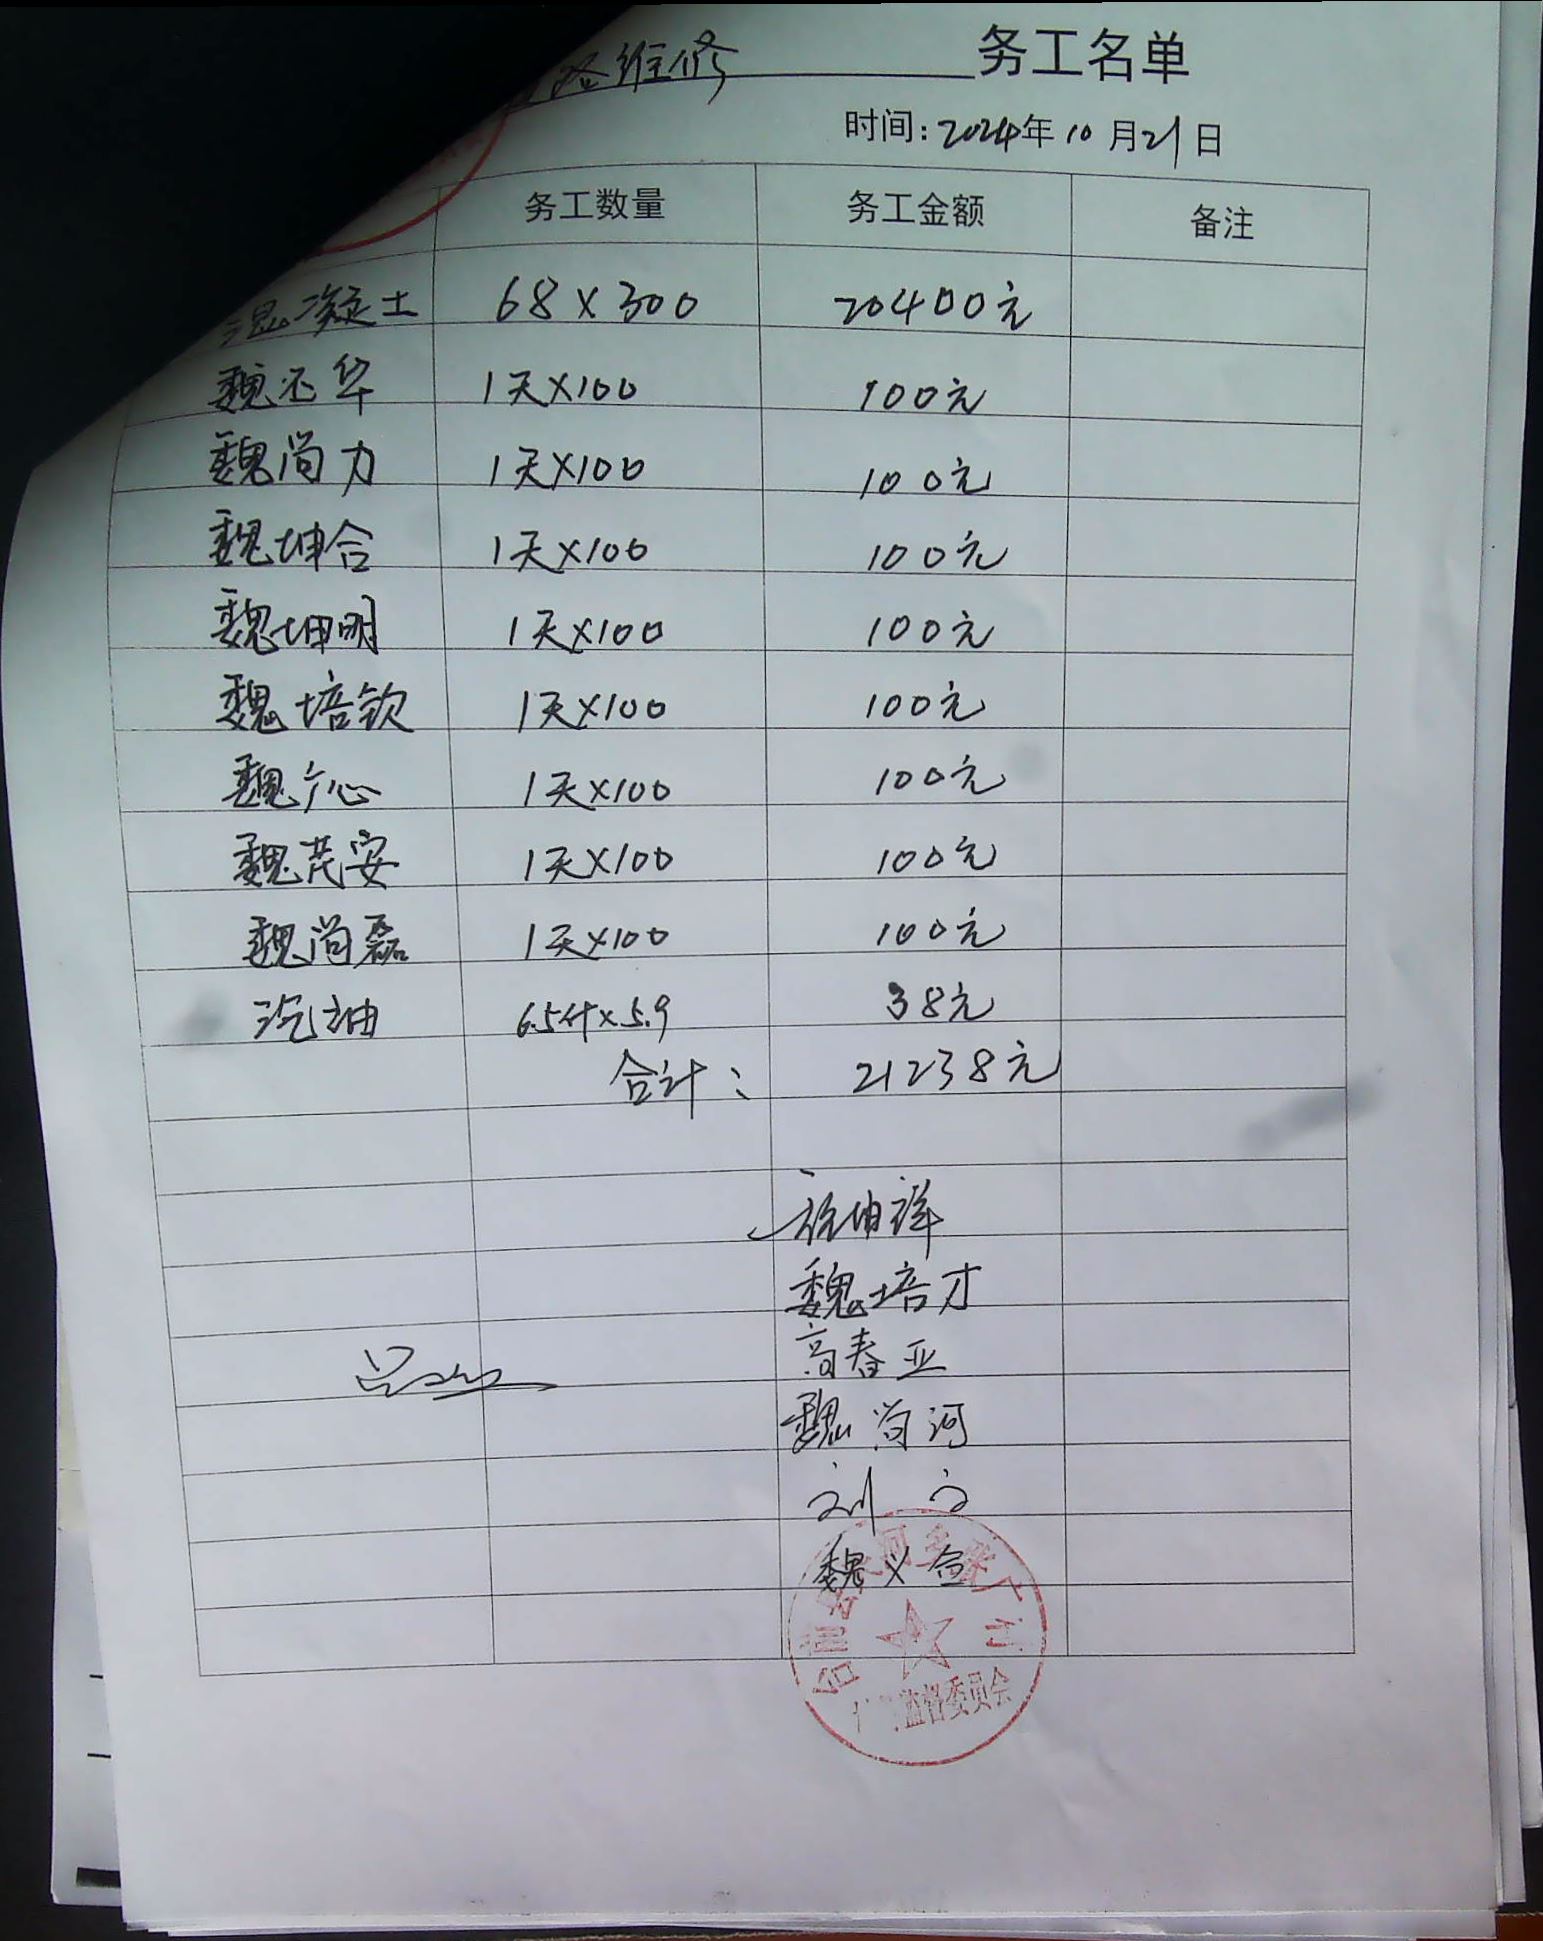 路维修 务工名单
时间：2024年10月21日
务工数量 务工金额 备注
混凝土 68×300 20400元
魏丕华 1天×100 100元
魏尚力 1天×100 100元
魏坤合 1天×100 100元
魏坤明 1天×100 100元
魏培钦 1天×100 100元
魏广心 1天×100 100元
魏茂安 1天×100 100元
魏尚磊 1天×100 100元
汽油 6.5升×5.9 38元
合计： 21238元
坤祥
魏培才
高春亚
魏尚河
刘
魏义合
台前 河 张广村
监督委员会